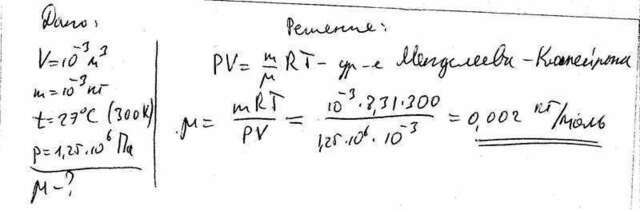 Дано:
V=10⁻³ м³
m=10⁻³ кг
t=27°C (300K)
p=1,25·10⁶ Па
μ-?
Решение:
PV = m/μ RT - ур-е Менделеева-Клапейрона
μ = mRT/PV = 10⁻³·8,31·300/1,25·10⁶·10⁻³ = 0,002 кг/моль